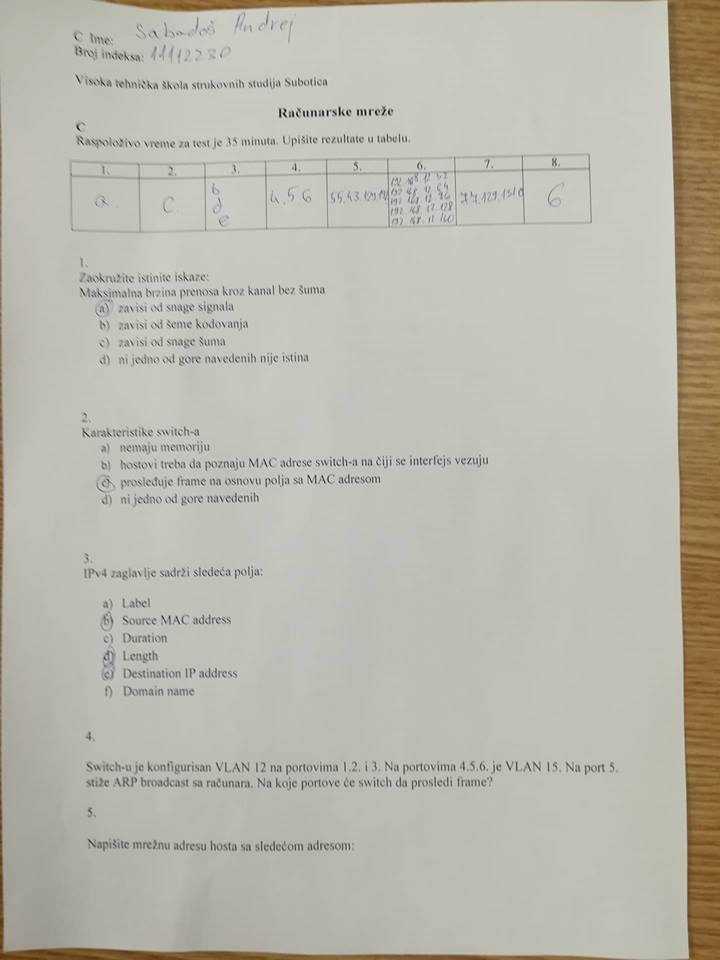 C Ime: Sabadoš Andrej
Broj indeksa: 11112230
Visoka tehnička škola strukovnih studija Subotica
Računarske mreže
C
Raspoloživo vreme za test je 35 minuta. Upišite rezultate u tabelu.
1. 2. 3. 4. 5. 6. 7. 8.
a. c. b d e 4.56 6
1.
Zaokružite istinite iskaze:
Maksimalna brzina prenosa kroz kanal bez šuma
a) zavisi od snage signala
b) zavisi od šeme kodovanja
c) zavisi od snage šuma
d) ni jedno od gore navedenih nije istina
2.
Karakteristike switch-a
a) nemaju memoriju
b) hostovi treba da poznaju MAC adrese switch-a na čiji se interfejs vezuju
c) prosleđuje frame na osnovu polja sa MAC adresom
d) ni jedno od gore navedenih
3.
IPv4 zaglavlje sadrži sledeća polja:
a) Label
b) Source MAC address
c) Duration
d) Length
e) Destination IP address
f) Domain name
4.
Switch-u je konfigurisan VLAN 12 na portovima 1.2. i 3. Na portovima 4.5.6. je VLAN 15. Na port 5.
stiže ARP broadcast sa računara. Na koje portove će switch da prosledi frame?
5.
Napišite mrežnu adresu hosta sa sledećom adresom: